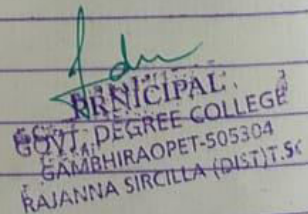 PRNICIPAL
GOVT. DEGREE COLLEGE
GAMBHIRAOPET-505304
RAJANNA SIRCILLA (DIST)T.S